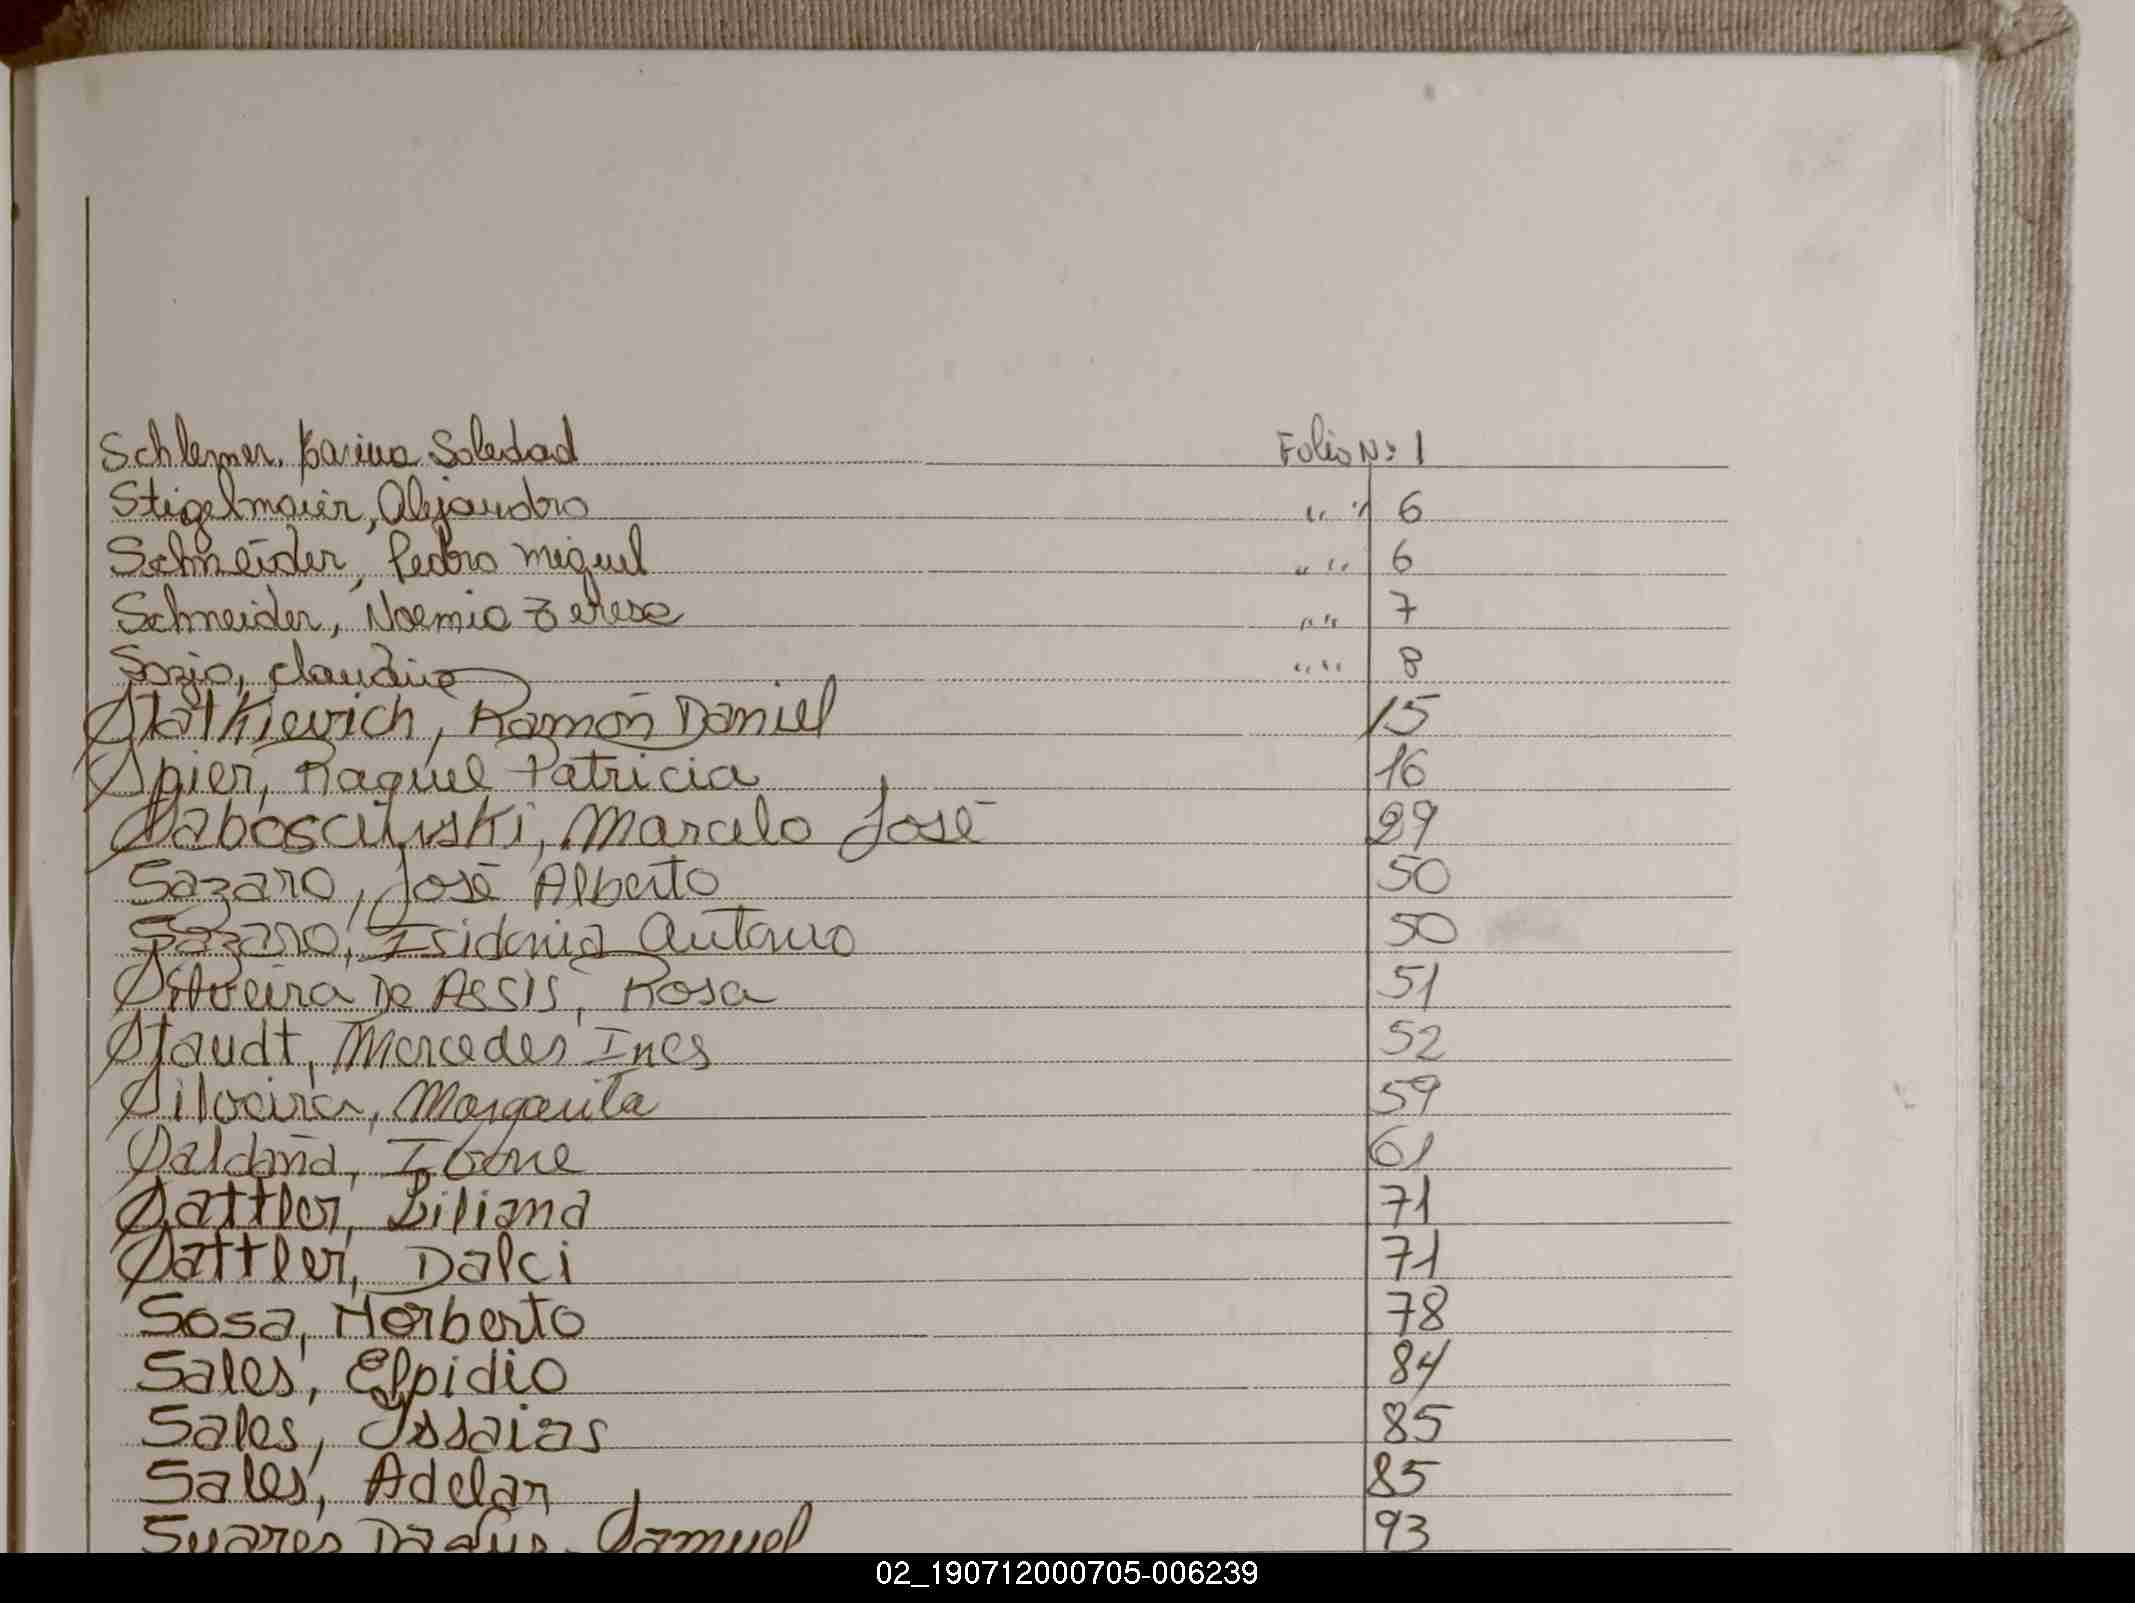 Schlemer, Karina Soledad Folio Nº 1
Stigelmaier, Alejandro " " 6
Schneider, Pedro Miguel " " 6
Schneider, Noemia Teresa " " 7
Sozio, Claudino " " 8
Statkievich, Ramón Daniel 15
Spier, Raquel Patricia 16
Marcelo José 29
Sazaro, José Alberto 50
Sazaro, Antonio 50
Silveira De Assis, Rosa 51
Staudt, Mercedes Ines 52
Silveira, Margarita 59
Saldaña, Ivone 61
Sattler, Liliana 71
Sattler, Dalci 71
Sosa, Norberto 78
Sales, Elpidio 84
Sales, Issaias 85
Sales, Adelar 85
Suares Samuel 93
02_190712000705-006239